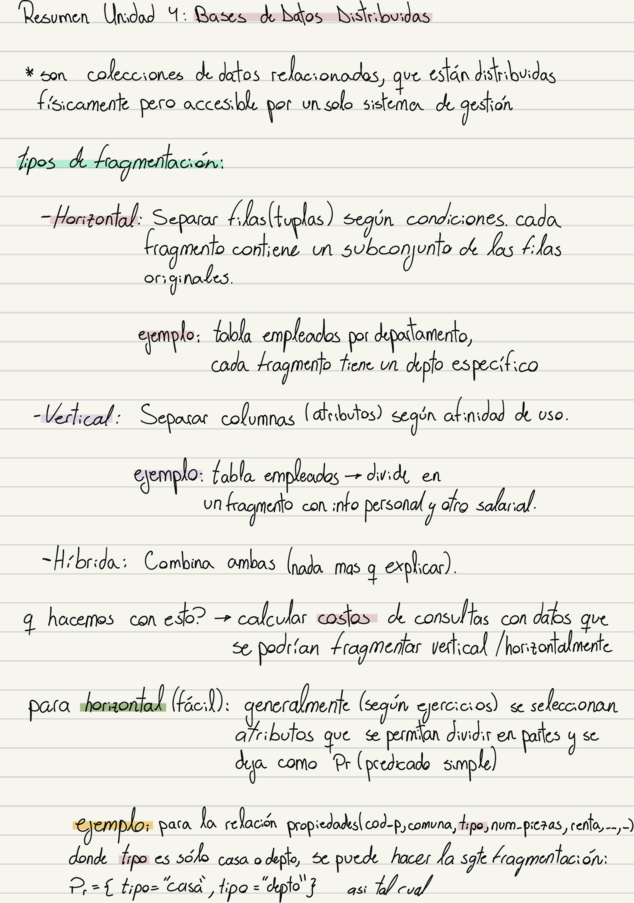 Resumen Unidad 4: Bases de Datos Distribuidas
* son colecciones de datos relacionados, que están distribuidas
físicamente pero accesible por un solo sistema de gestión
tipos de fragmentación:
-Horizontal: Separar filas(tuplas) según condiciones. cada
fragmento contiene un subconjunto de las filas
originales.
ejemplo: tabla empleados por departamento,
cada fragmento tiene un depto específico
-Vertical: Separar columnas (atributos) según afinidad de uso.
ejemplo: tabla empleados → divide en
un fragmento con info personal y otro salarial.
-Híbrida: Combina ambas (nada mas q explicar).
q hacemos con esto? → calcular costos de consultas con datos que
se podrían fragmentar vertical/horizontalmente
para horizontal (fácil): generalmente (según ejercicios) se seleccionan
atributos que se permitan dividir en partes y se
deja como Pr (predicado simple)
ejemplo: para la relación propiedades(cod-p, comuna, tipo, num-piezas, renta, ..., -)
donde tipo es sólo casa o depto, se puede hacer la sgte fragmentación:
Pr = { tipo="casa", tipo ="depto"} asi tal cual